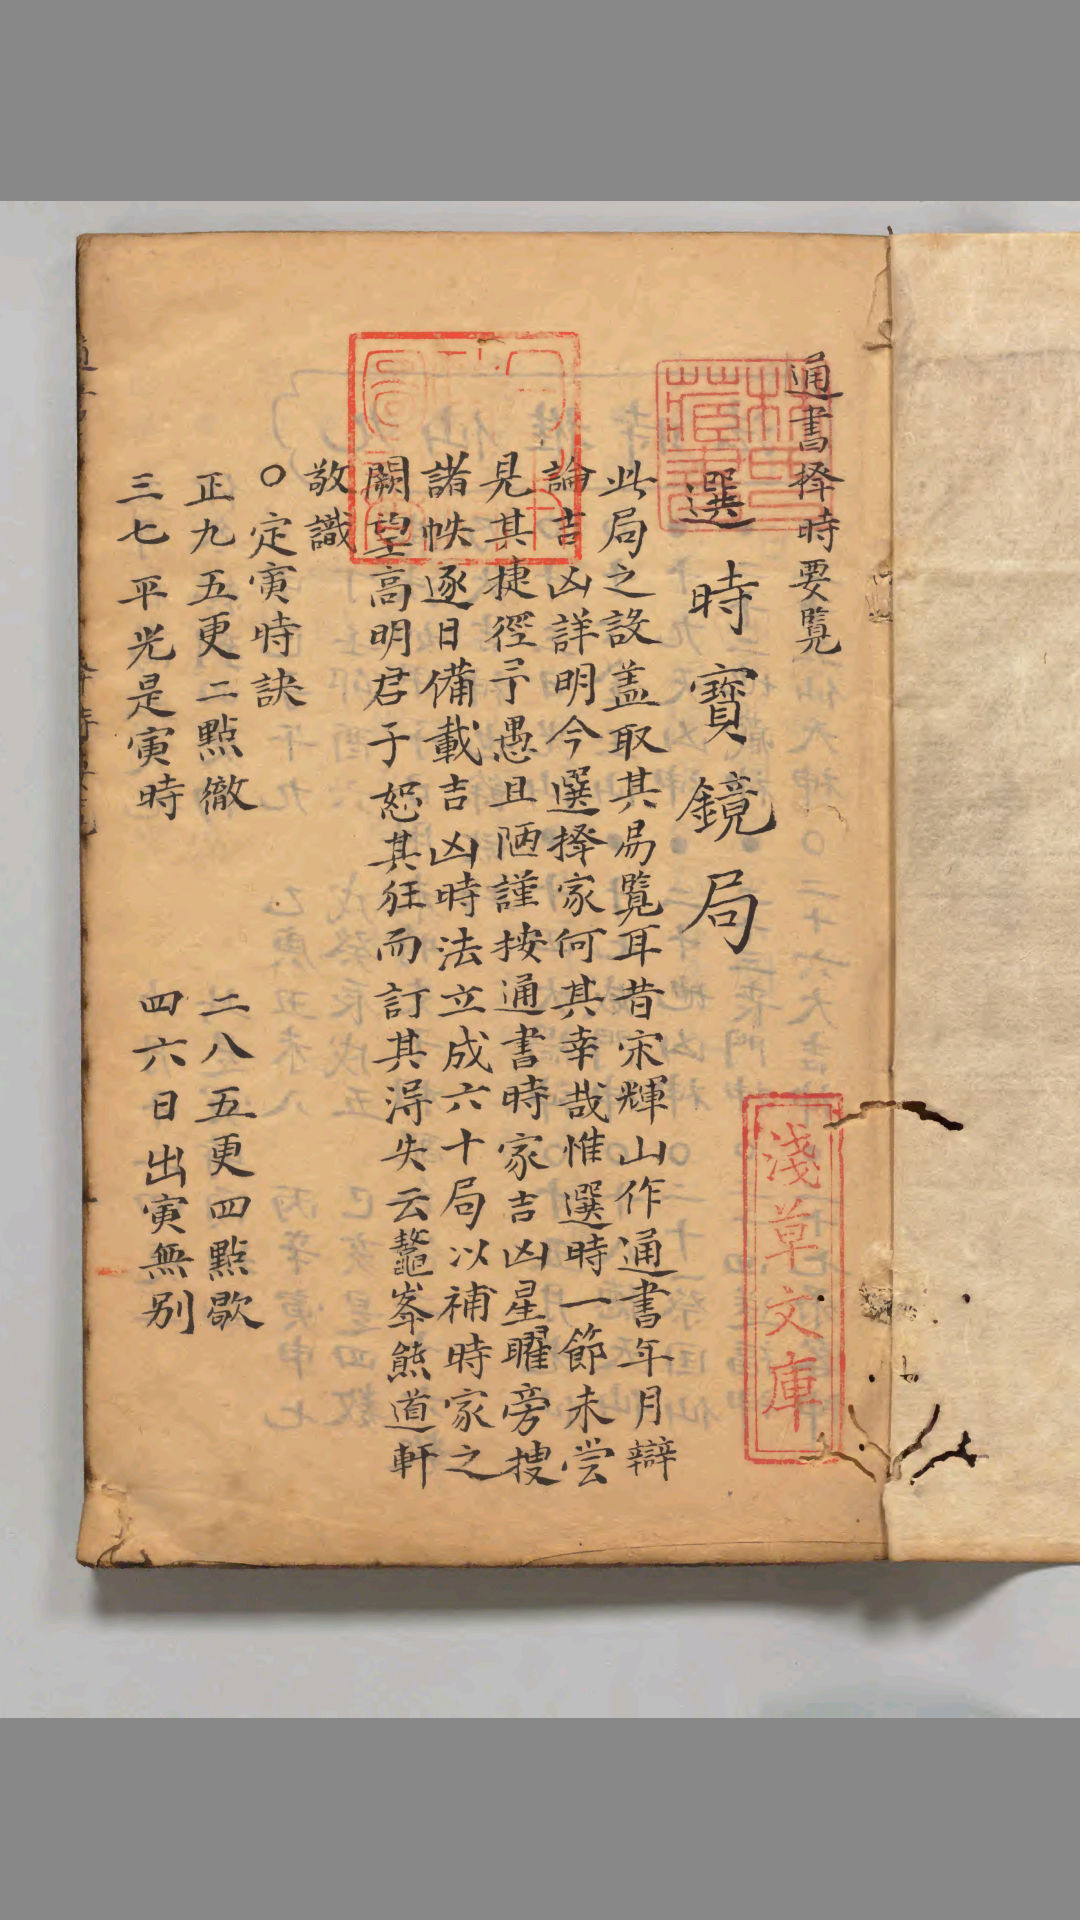 通書擇時要覽
選時寶鏡局
此局之設蓋取其易覽耳昔宋輝山作通書年月辯
論吉凶詳明今選擇家何其幸哉惟選時一節未尝
見其捷徑予愚且陋謹按通書時家吉凶星曜旁搜
諸帙逐日備載吉凶時法立成六十局以補時家之
闕望高明君子恕其狂而訂其淂失云鼇峯熊道軒
敬識
○定寅時訣
正九五更二點徹 二八五更四點歇
三七平光是寅時 四六日出寅無别
淺草文庫